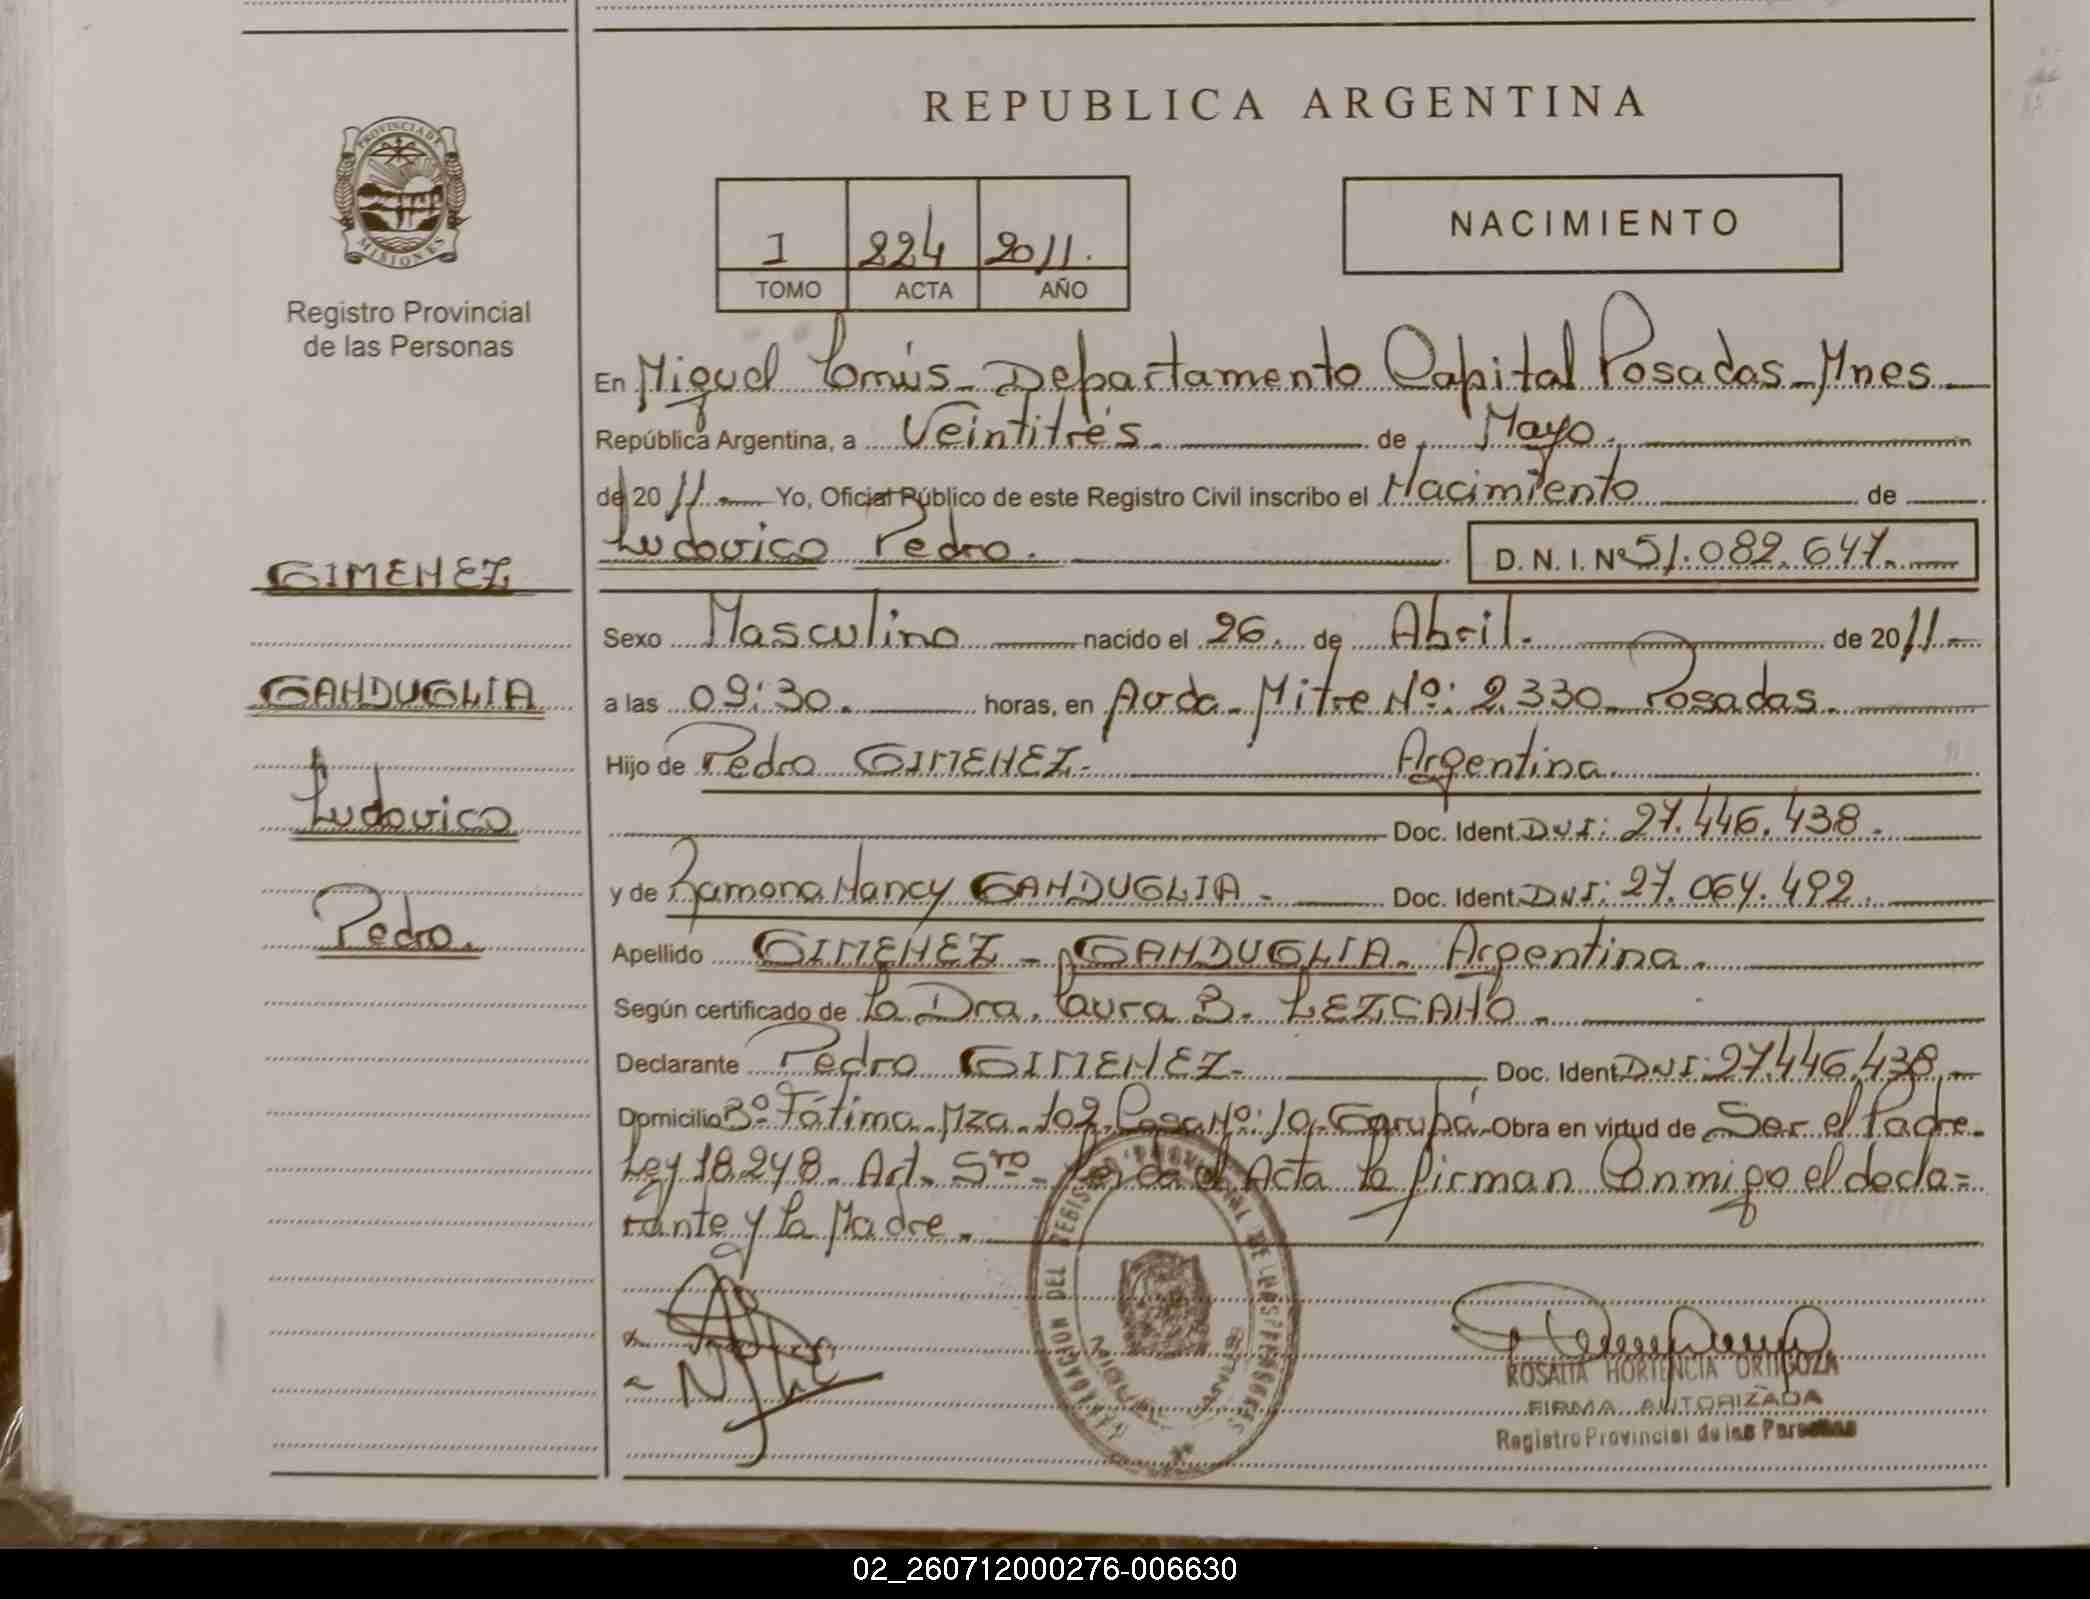 REPUBLICA ARGENTINA
PROVINCIA DE MISIONES
Registro Provincial
de las Personas
I 224 2011.
TOMO ACTA AÑO
NACIMIENTO
En Miguel Lanús - Departamento Capital Posadas - Mnes
República Argentina, a Veintitrés. de Mayo.
de 2011.- Yo, Oficial Público de este Registro Civil inscribo el Nacimiento de
Ludovico Pedro. D.N.I. Nº 51.082.647.
GIMENEZ
GANDUGLIA
Ludovico
Pedro.
Sexo Masculino nacido el 26. de Abril. de 2011.-
a las 09:30. horas, en Avda. Mitre Nº: 2.330 - Posadas.
Hijo de Pedro GIMENEZ. Argentina.
Doc. Ident. DNI: 27.446.438.
y de Ramona Nancy GANDUGLIA - Doc. Ident. DNI: 27.064.492.
Apellido GIMENEZ - GANDUGLIA. Argentina.
Según certificado de la Dra. Laura B. LEZCANO.
Declarante Pedro GIMENEZ. Doc. Ident. DNI: 27.446.438.
Domicilio Bº Fátima. Mza. 102. Casa Nº: 10 - Garupá. Obra en virtud de Ser el Padre.
Ley 18.248. Art. 5to. Leída el Acta la firman Conmigo el decla=
rante y la Madre.
DELEGACION DEL REGISTRO PROVINCIAL DE LAS PERSONAS
MIGUEL LANUS
ROSALIA HORTENCIA ORTIGOZA
FIRMA AUTORIZADA
Registro Provincial de las Personas
02_260712000276-006630